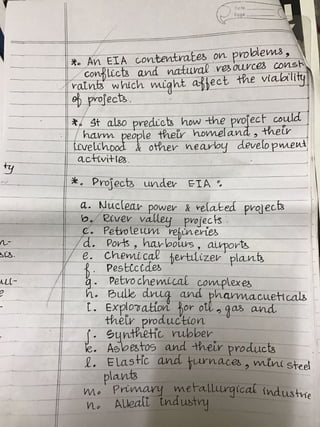 Date
Page
*. An EIA contentrates on problems,
conflicts and natural resources const
raints which might affect the viability
of projects.
*. It also predicts how the project could
harm people their homeland, their
livelihood & other nearby development
activities.
ty
*. Projects under EIA :
a. Nuclear power & related projects
b. River valley projects
c. Petroleum refineries
d. Ports, harbours, airports
e. Chemical fertilizer plants
f. Pesticides
g. Petrochemical complexes
h. Bulk drug and pharmacueticals
i. Exploration for oil, gas and
their production
j. Synthetic rubber
k. Asbestos and their products
l. Elastic and furnaces, mini steel
plants
m. Primary metallurgical industrie
n. Alkali Industry